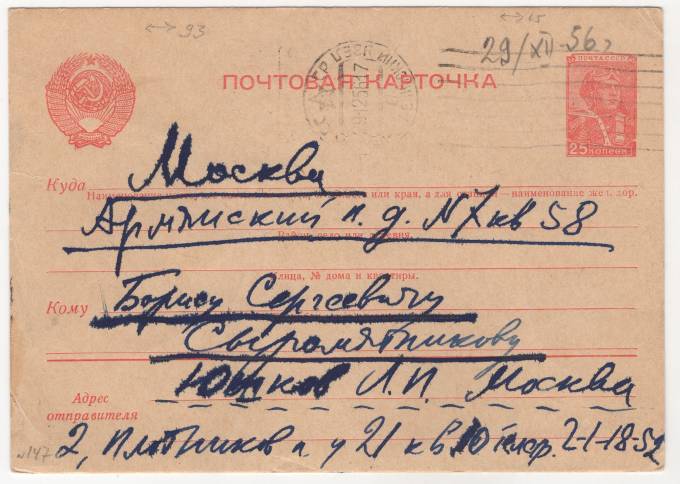 93
65
29/XII-56 г
ПОЧТА СССР
ПОЧТОВАЯ КАРТОЧКА
25 КОПЕЕК
Куда Москва
или края, а для станции—наименование жел. дор.
Армянский п. д. N7 кв 58
Район, село или деревня.
Улица, № дома и квартиры.
Кому Борису Сергеевичу
Сыромятникову
Адрес отправителя Юшков Л.П. Москва
2, Плотников п. д 21 кв 10 телеф. 2-1-18-52
N147